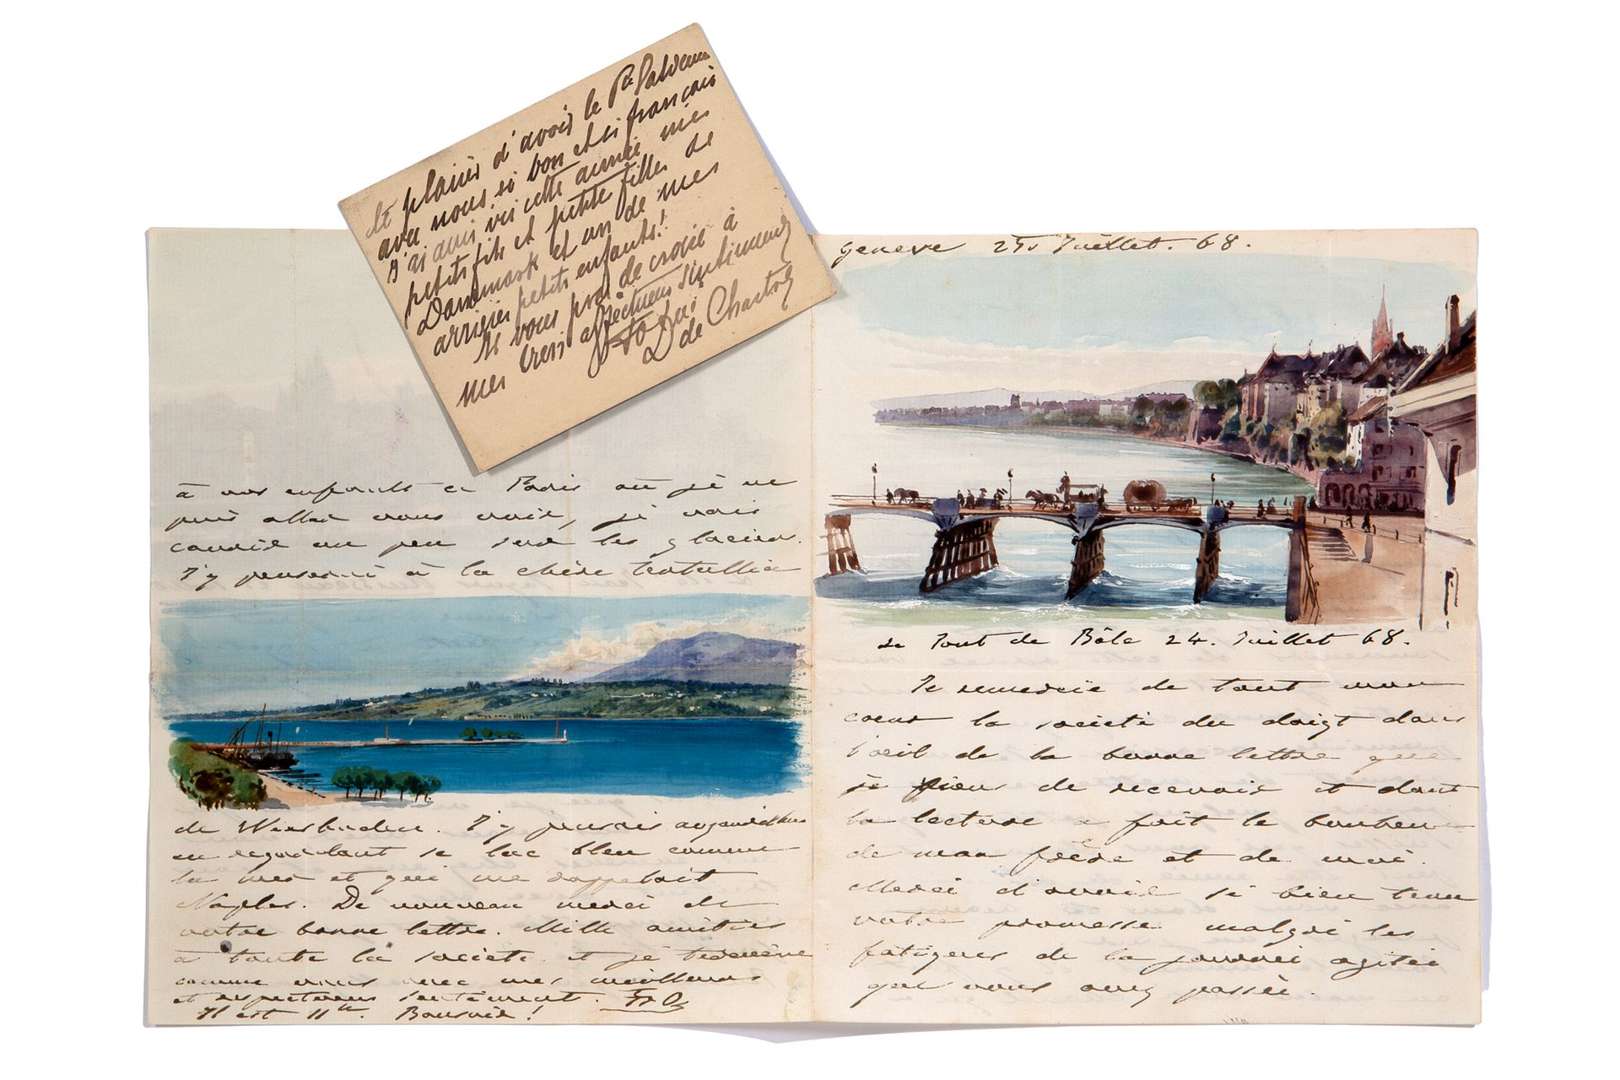 le plaisir d'avoir le Pce Valdemar
avec nous si bon et si français
J'ai aussi vu cette année mes
petits fils et petite filles de
Danemark et un de mes
arrières petits enfants!
Je vous prie de croire à
mes bien affectueux sentiments
de Chartres
à vos enfants à Paris où je ne
puis aller vous voir, je vais
courir un peu sur les glaciers.
J'y penserai à la chère
de Wiesbaden. J'y pensais aujourd'hui
en regardant le lac bleu comme
la mer et qui me rappelait
Naples. De nouveau merci de
votre bonne lettre. Mille amitiés
à toute la société et je termine
comme vous avec mes meilleurs
et respectueux sentiment.
Il est 11h. Bonsoir!
Genève 25 Juillet. 68.
Le Pont de Bâle 24. Juillet 68.
Je remercie de tout mon
coeur la société du doigt dans
l'oeil de la bonne lettre que
je viens de recevoir et dont
la lecture a fait le bonheur
de mon frère et de moi.
Merci d'avoir si bien tenu
votre promesse malgré les
fatigues de la journée agitée
que vous avez passée.